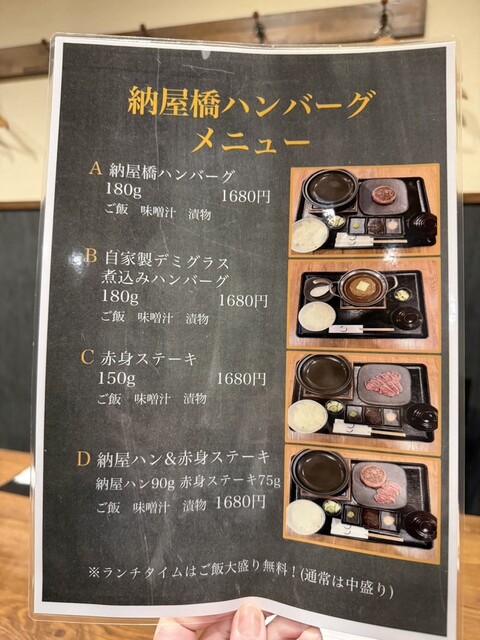 納屋橋ハンバーグ
メニュー
A 納屋橋ハンバーグ
180g 1680円
ご飯 味噌汁 漬物
B 自家製デミグラス
煮込みハンバーグ
180g 1680円
ご飯 味噌汁 漬物
C 赤身ステーキ
150g 1680円
ご飯 味噌汁 漬物
D 納屋ハン&赤身ステーキ
納屋ハン90g 赤身ステーキ75g
ご飯 味噌汁 漬物 1680円
※ランチタイムはご飯大盛り無料！(通常は中盛り)